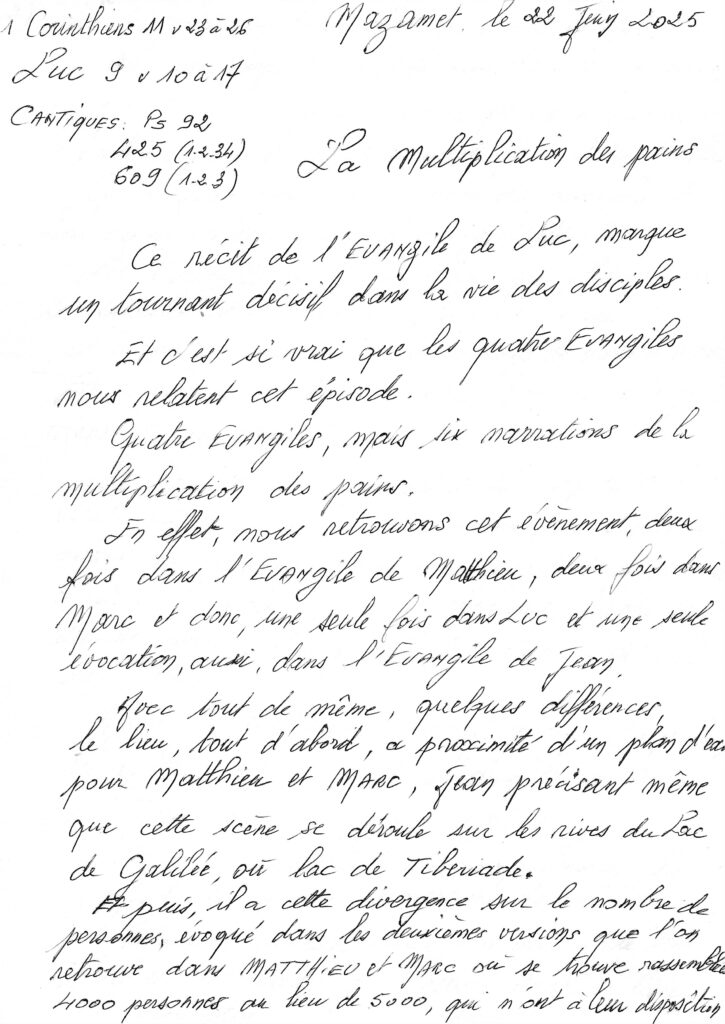 1 Corinthiens 11 v 23 à 26
Mazamet. le 22 Juin 2025
Luc 9 v 10 à 17
CANTIQUES: Ps 92
425 (1-2-34)
609 (1-2-3)
La multiplication des pains
Ce récit de l'EVANgile de Luc, marque
un tournant décisif dans la vie des disciples.
Et c'est si vrai que les quatre EVANgiles
nous relatent cet épisode.
Quatre EVANGiles, mais six narrations de la
multiplication des pains.
En effet, nous retrouvons cet évènement, deux
fois dans l'EVANgile de Matthieu, deux fois dans
Marc et donc, une seule fois dans Luc et une seule
évocation, aussi, dans l'EVANgile de Jean,
Avec tout de même, quelques différences,
le lieu, tout d'abord, a proximité d'un plan d'eau
pour Matthieu et MARC, Jean précisant même
que cette scène se déroule sur les rives du Lac
de Galilée, ou lac de Tiberiade.
Et puis, il a cette divergence sur le nombre de
personnes, évoqué dans les deuxièmes versions que l'on
retrouve dans MATTHIEU et MARC où se trouve rassemblée
4000 personnes au lieu de 5000, qui n'ont à leur disposition